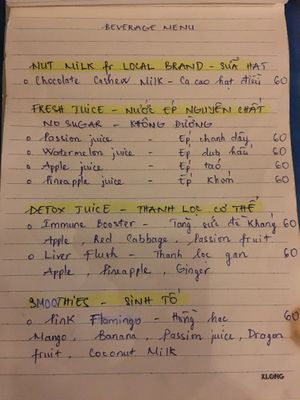 BEVERAGE MENU
NUT MILK fr LOCAL BRAND - SỮA HẠT
o Chocolate Cashew Milk - Ca cao hạt điều 60
FRESH JUICE - NƯỚC ÉP NGUYÊN CHẤT
NO SUGAR - KHÔNG ĐƯỜNG
o Passion juice - Ép chanh dây 60
o Watermelon juice - Ép dưa hấu 60
o Apple juice - Ép táo 60
o Pineapple juice - Ép khóm 60
DETOX JUICE - THANH LỌC CƠ THỂ
o Immune Booster - Tăng sức đề kháng 60
Apple, Red Cabbage, Passion fruit
o Liver Flush - Thanh lọc gan 60
Apple, Pineapple, Ginger
SMOOTHIES - SINH TỐ
o Pink Flamingo - Hồng hạc 60
Mango, Banana, Passion juice, Dragon
fruit, Coconut Milk
KLONG